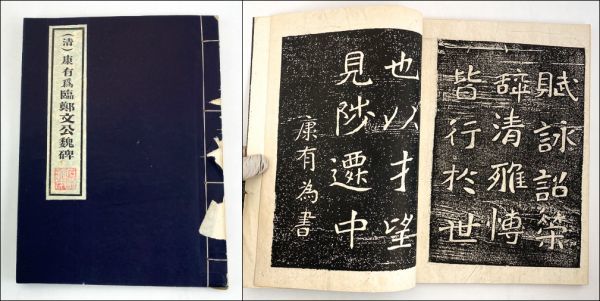 （清）康有爲臨鄭文公魏碑
賦詠詔策
辭清雅愽
皆行於世
也以才望
見陟遷中
康有為書